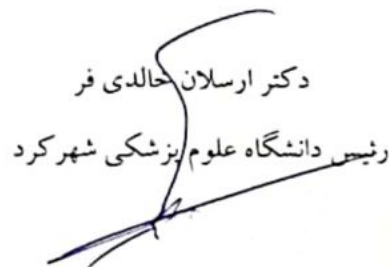 دکتر ارسلان خالدی فر
رئیس دانشگاه علوم پزشکی شهرکرد